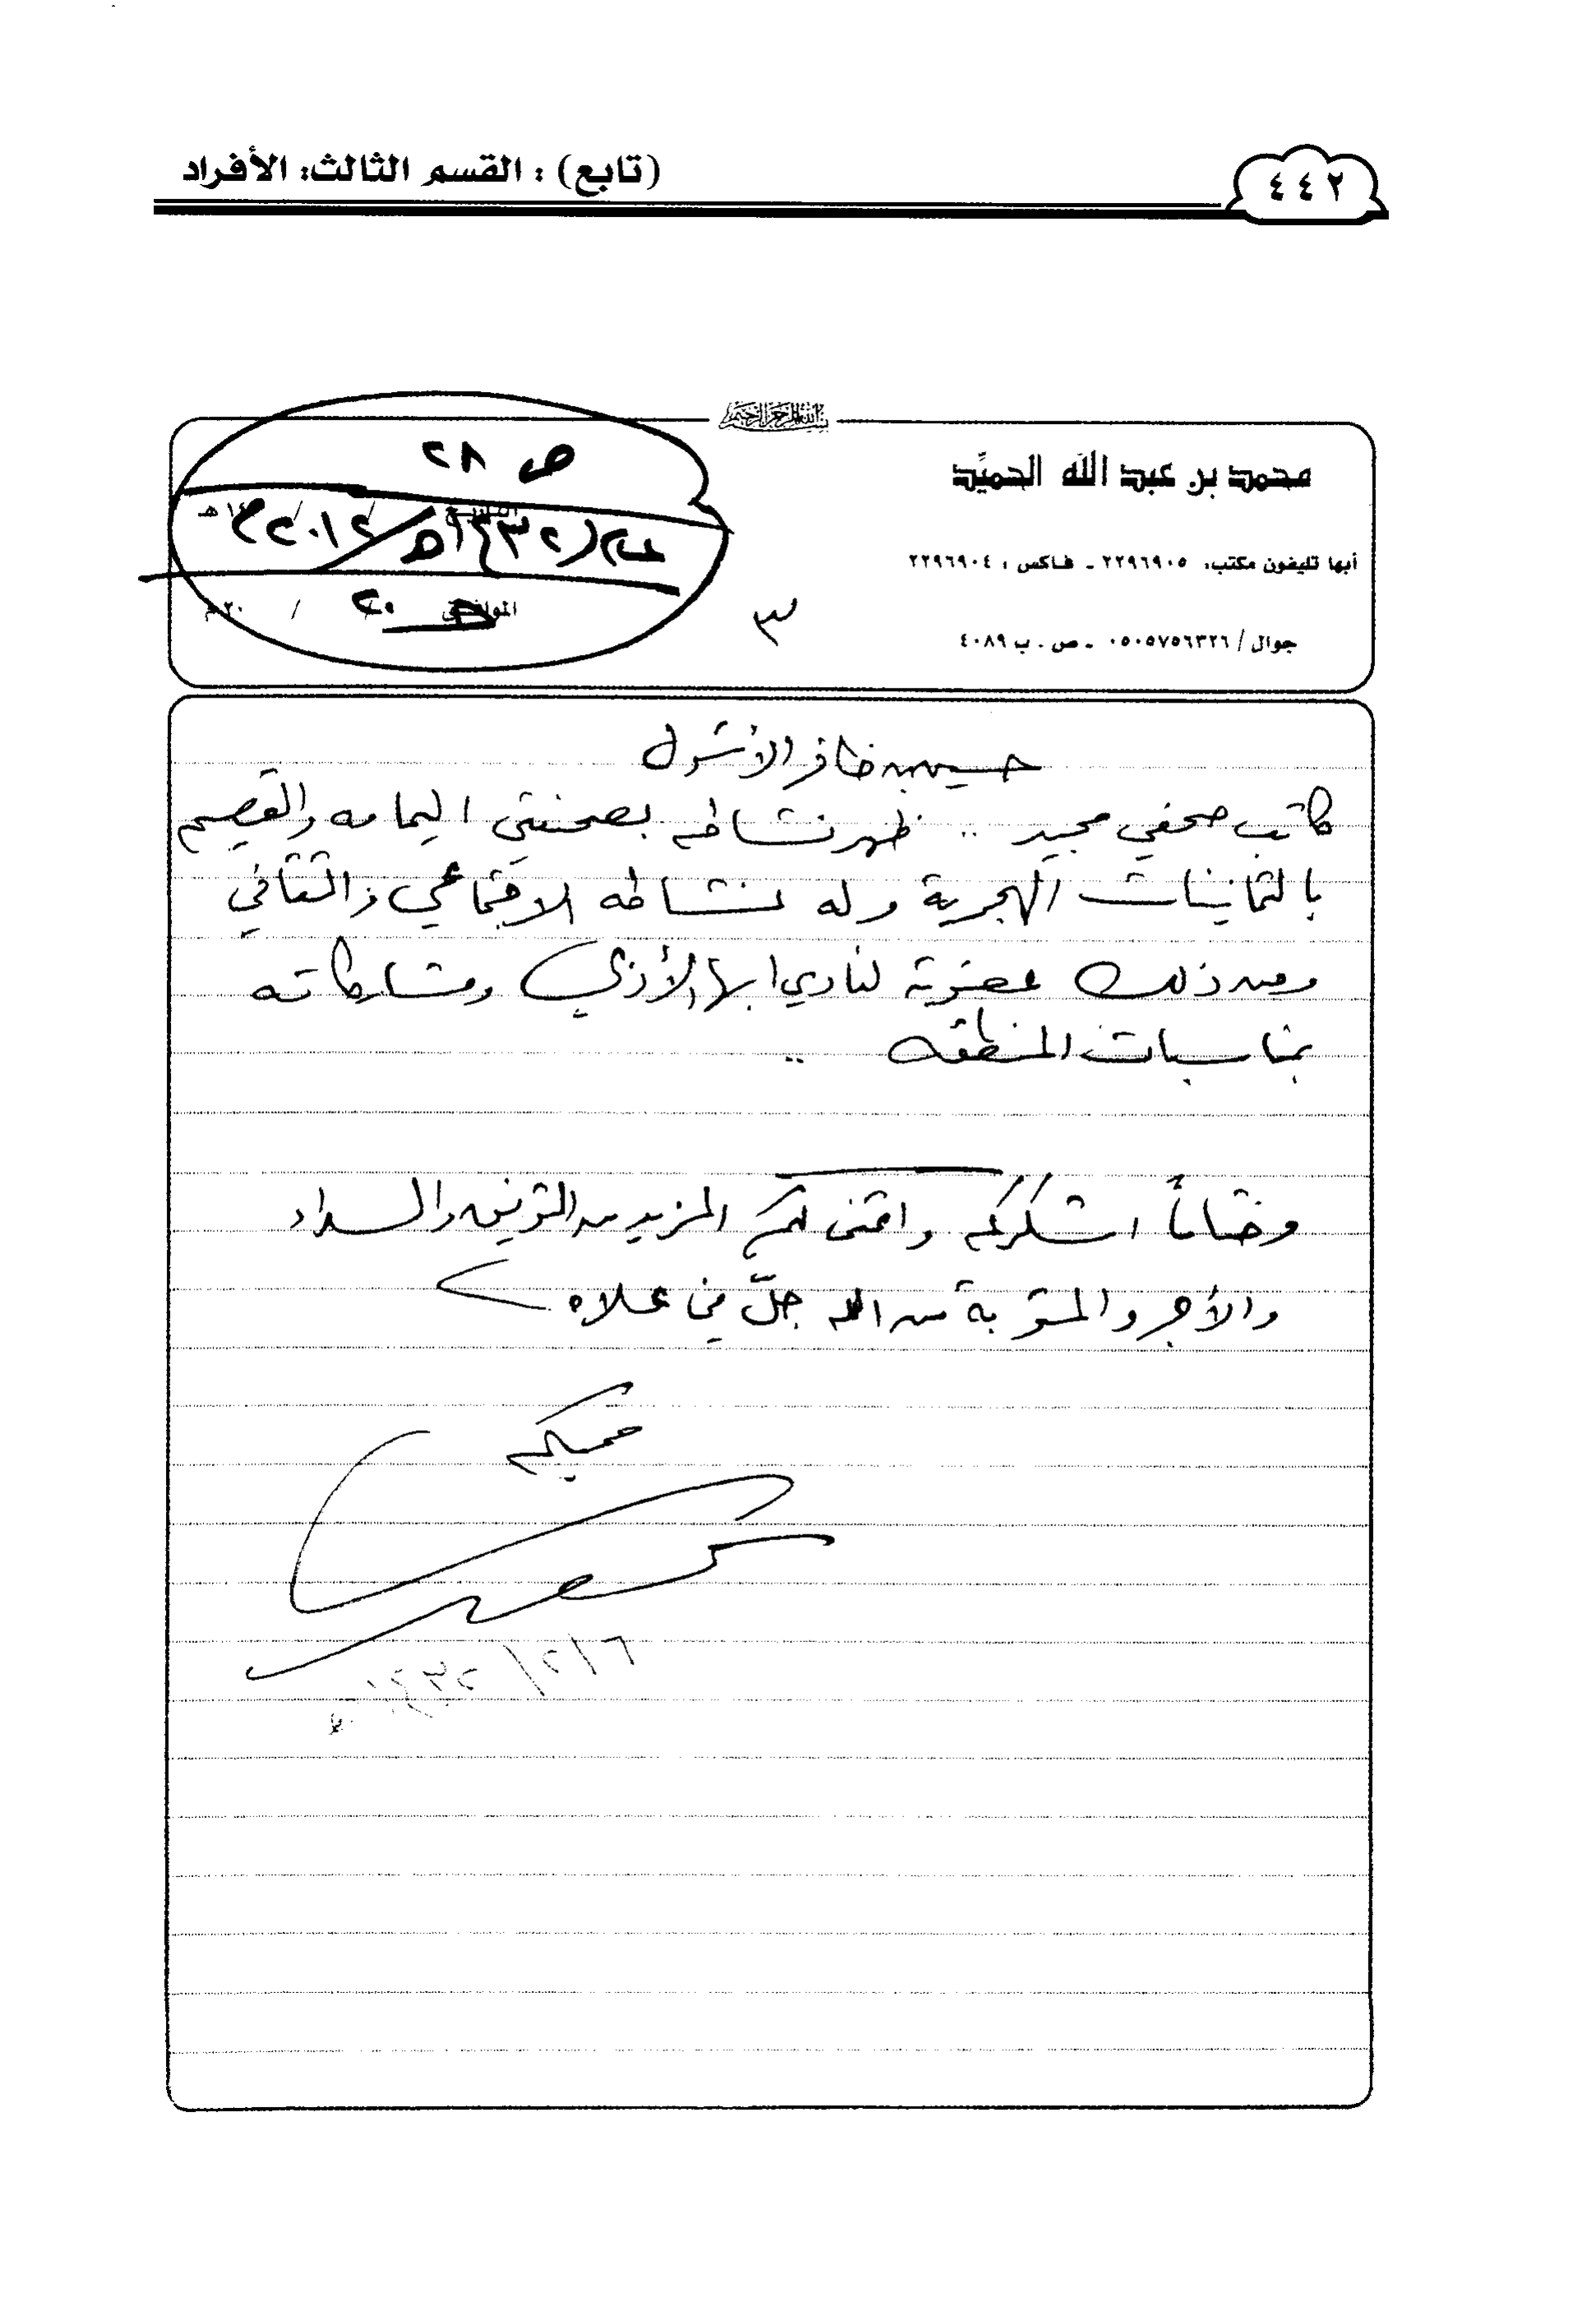 (تابع) : القسم الثالث: الأفراد
٤٤٢
بسم الله الرحمن الرحيم
محمد بن عبد الله الحميِّد
أبها تليفون مكتب: ٢٢٩٦٩٠٥ - فاكس : ٢٢٩٦٩٠٤
جوال / ٠٥٠٥٧٥٦٣٢٦ - ص . ب ٤٠٨٩
ص ٢٨
عام (١٤٣٢هـ/٢٠١٢م)
الموافق / / ٢٠ م
٣
حسين ظافر الأشول
كاتب صحفي مجيد .. ظهر نشاطه بصحيفتي اليمامه والقصيم
بالثمانينات الهجرية وله نشاطه الاجتماعي والثقافي
ومن ذلك عضوية لنادي ابها الأدبي ومشاركاته
بمناسبات المنطقه ..
وختاماً اشكركم واتمنى لكم المزيد من التوفيق والسداد
والأجر والمثوبة من الله جلّ في علاه
محبكم
٦/٢/١٤٣٢هـ